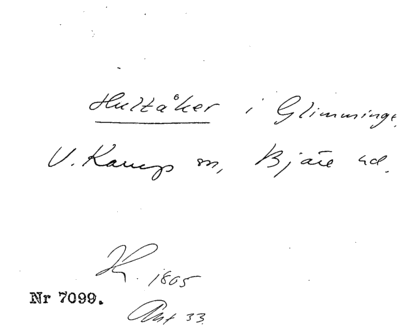 Hultåker i Glimminge,
V. Karup sn, Bjäre hd.
K. 1805
Nr 7099.
Akt 33